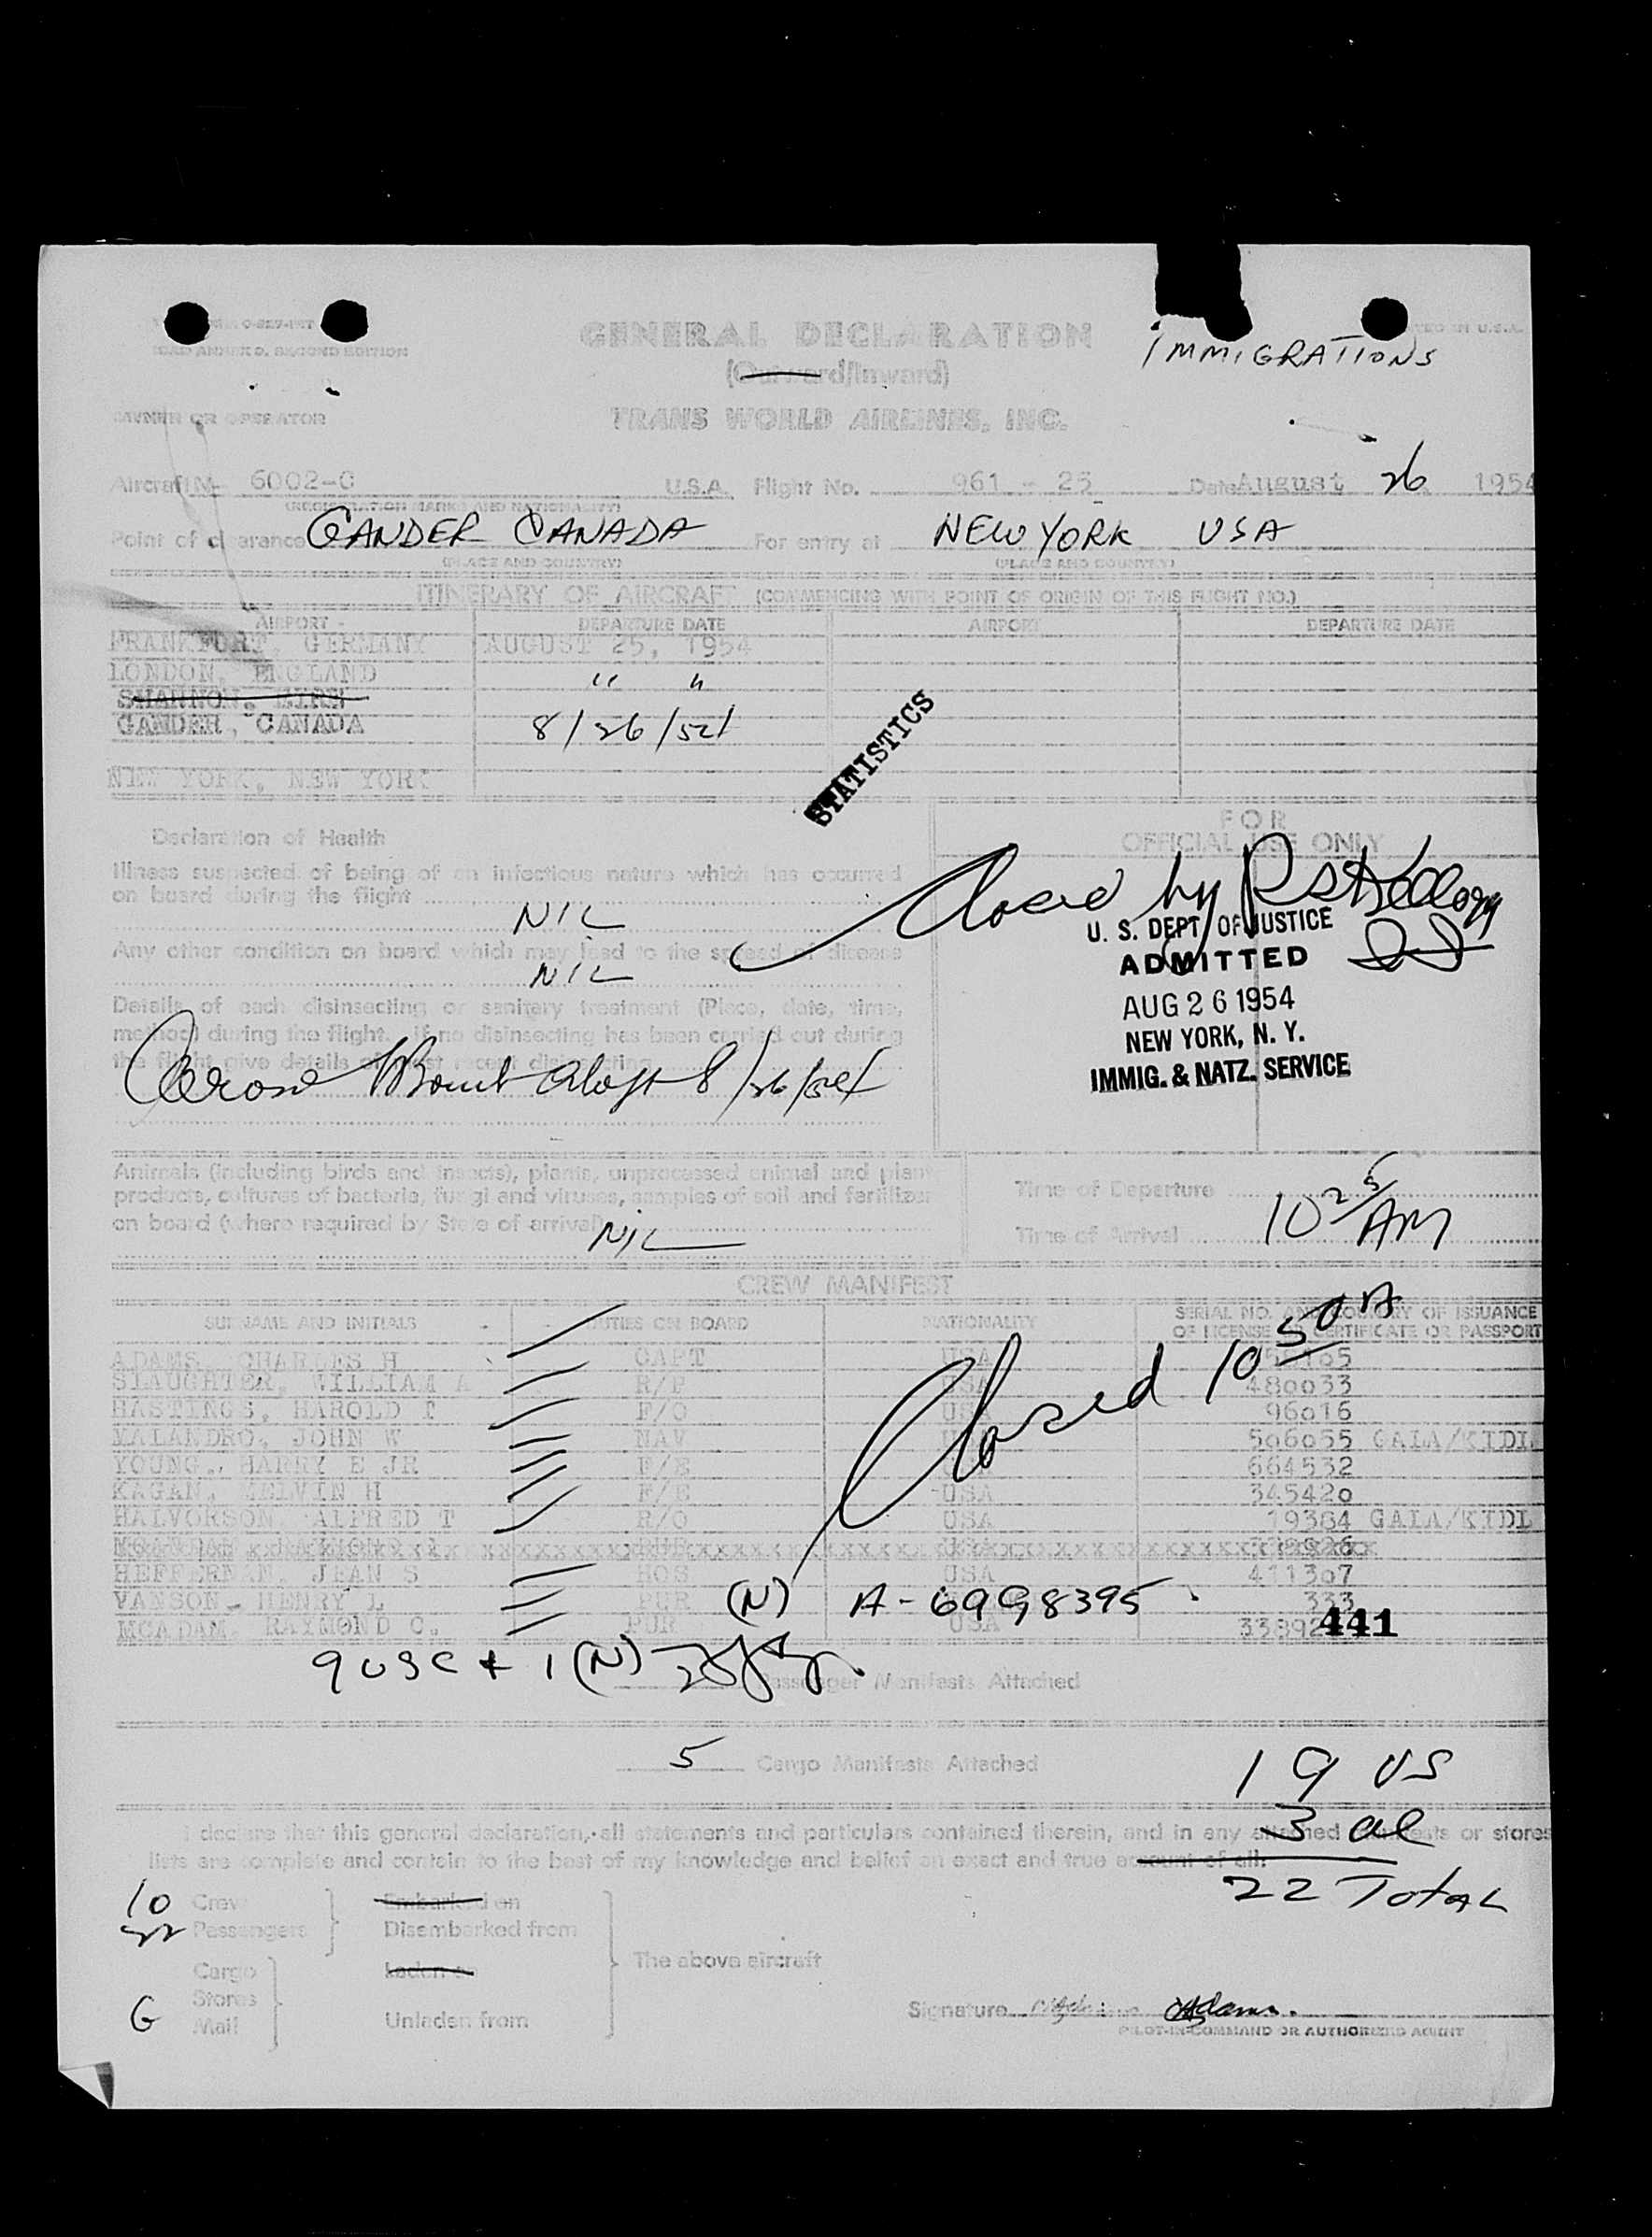 ICAO ANNEX 9, SECOND EDITION
GENERAL DECLARATION
IMMIGRATIONS
(Outward/Inward)
OWNER OR OPERATOR TRANS WORLD AIRLINES, INC.
Aircraft N- 6002-C U.S.A. Flight No. 961 - 25 Date August 26 1954
(REGISTRATION MARKS AND NATIONALITY)
Point of clearance GANDER CANADA For entry at NEW YORK USA
(PLACE AND COUNTRY) (PLACE AND COUNTRY)
ITINERARY OF AIRCRAFT (COMMENCING WITH POINT OF ORIGIN OF THIS FLIGHT NO.)
AIRPORT DEPARTURE DATE AIRPORT DEPARTURE DATE
FRANKFURT, GERMANY AUGUST 25, 1954
LONDON, ENGLAND " "
SHANNON, EIRE
GANDER, CANADA 8/26/54
NEW YORK, NEW YORK
STATISTICS
Declaration of Health
Illness suspected of being of an infectious nature which has occurred
on board during the flight
NIL
Any other condition on board which may lead to the spread of disease
NIL
Details of each disinsecting or sanitary treatment (Place, date, time,
method) during the flight. If no disinsecting has been carried out during
the flight give details of most recent disinsecting
Aerosol Bomb Aloft 8/26/54
FOR
OFFICIAL USE ONLY
Closed by R S Kellogg
U. S. DEPT OF JUSTICE
ADMITTED
AUG 26 1954
NEW YORK, N. Y.
IMMIG. & NATZ. SERVICE
Animals (including birds and insects), plants, unprocessed animal and plant
products, cultures of bacteria, fungi and viruses, samples of soil and fertilizer
on board (where required by State of arrival) NIL
Time of Departure
Time of Arrival 10 25 AM
CREW MANIFEST
SURNAME AND INITIALS DUTIES ON BOARD NATIONALITY SERIAL NO. AND COUNTRY OF ISSUANCE
OF LICENSE OR CERTIFICATE OR PASSPORT
Closed 10 50 A
ADAMS, CHARLES H CAPT USA
SLAUGHTER, WILLIAM A R/P USA 480033
HASTINGS, HAROLD T F/O USA 96016
MALANDRO, JOHN W NAV USA 506055 GALA/KIDL
YOUNG, HARRY E JR F/E USA 664532
KAGAN, MELVIN H F/E USA 345420
HALVORSON, ALFRED T R/O USA 19364 GALA/KIDL
HEFFERNAN, JEAN S HOS USA 411307
VANSON, HENRY L PUR (N) A-6998395 333
MCADAM, RAYMOND C. PUR USA 33892
441
9 USC + 1 (N)
Passenger Manifests Attached
5 Cargo Manifests Attached
19 US
3 al
22 Total
I declare that this general declaration, all statements and particulars contained therein, and in any attached manifests or stores
lists are complete and contain to the best of my knowledge and belief an exact and true account of all:
10 Crew Embarked on
22 Passengers Disembarked from
Cargo Laden on
The above aircraft
Stores
G Mail Unladen from
Signature CHAdams.
PILOT-IN-COMMAND OR AUTHORIZED AGENT